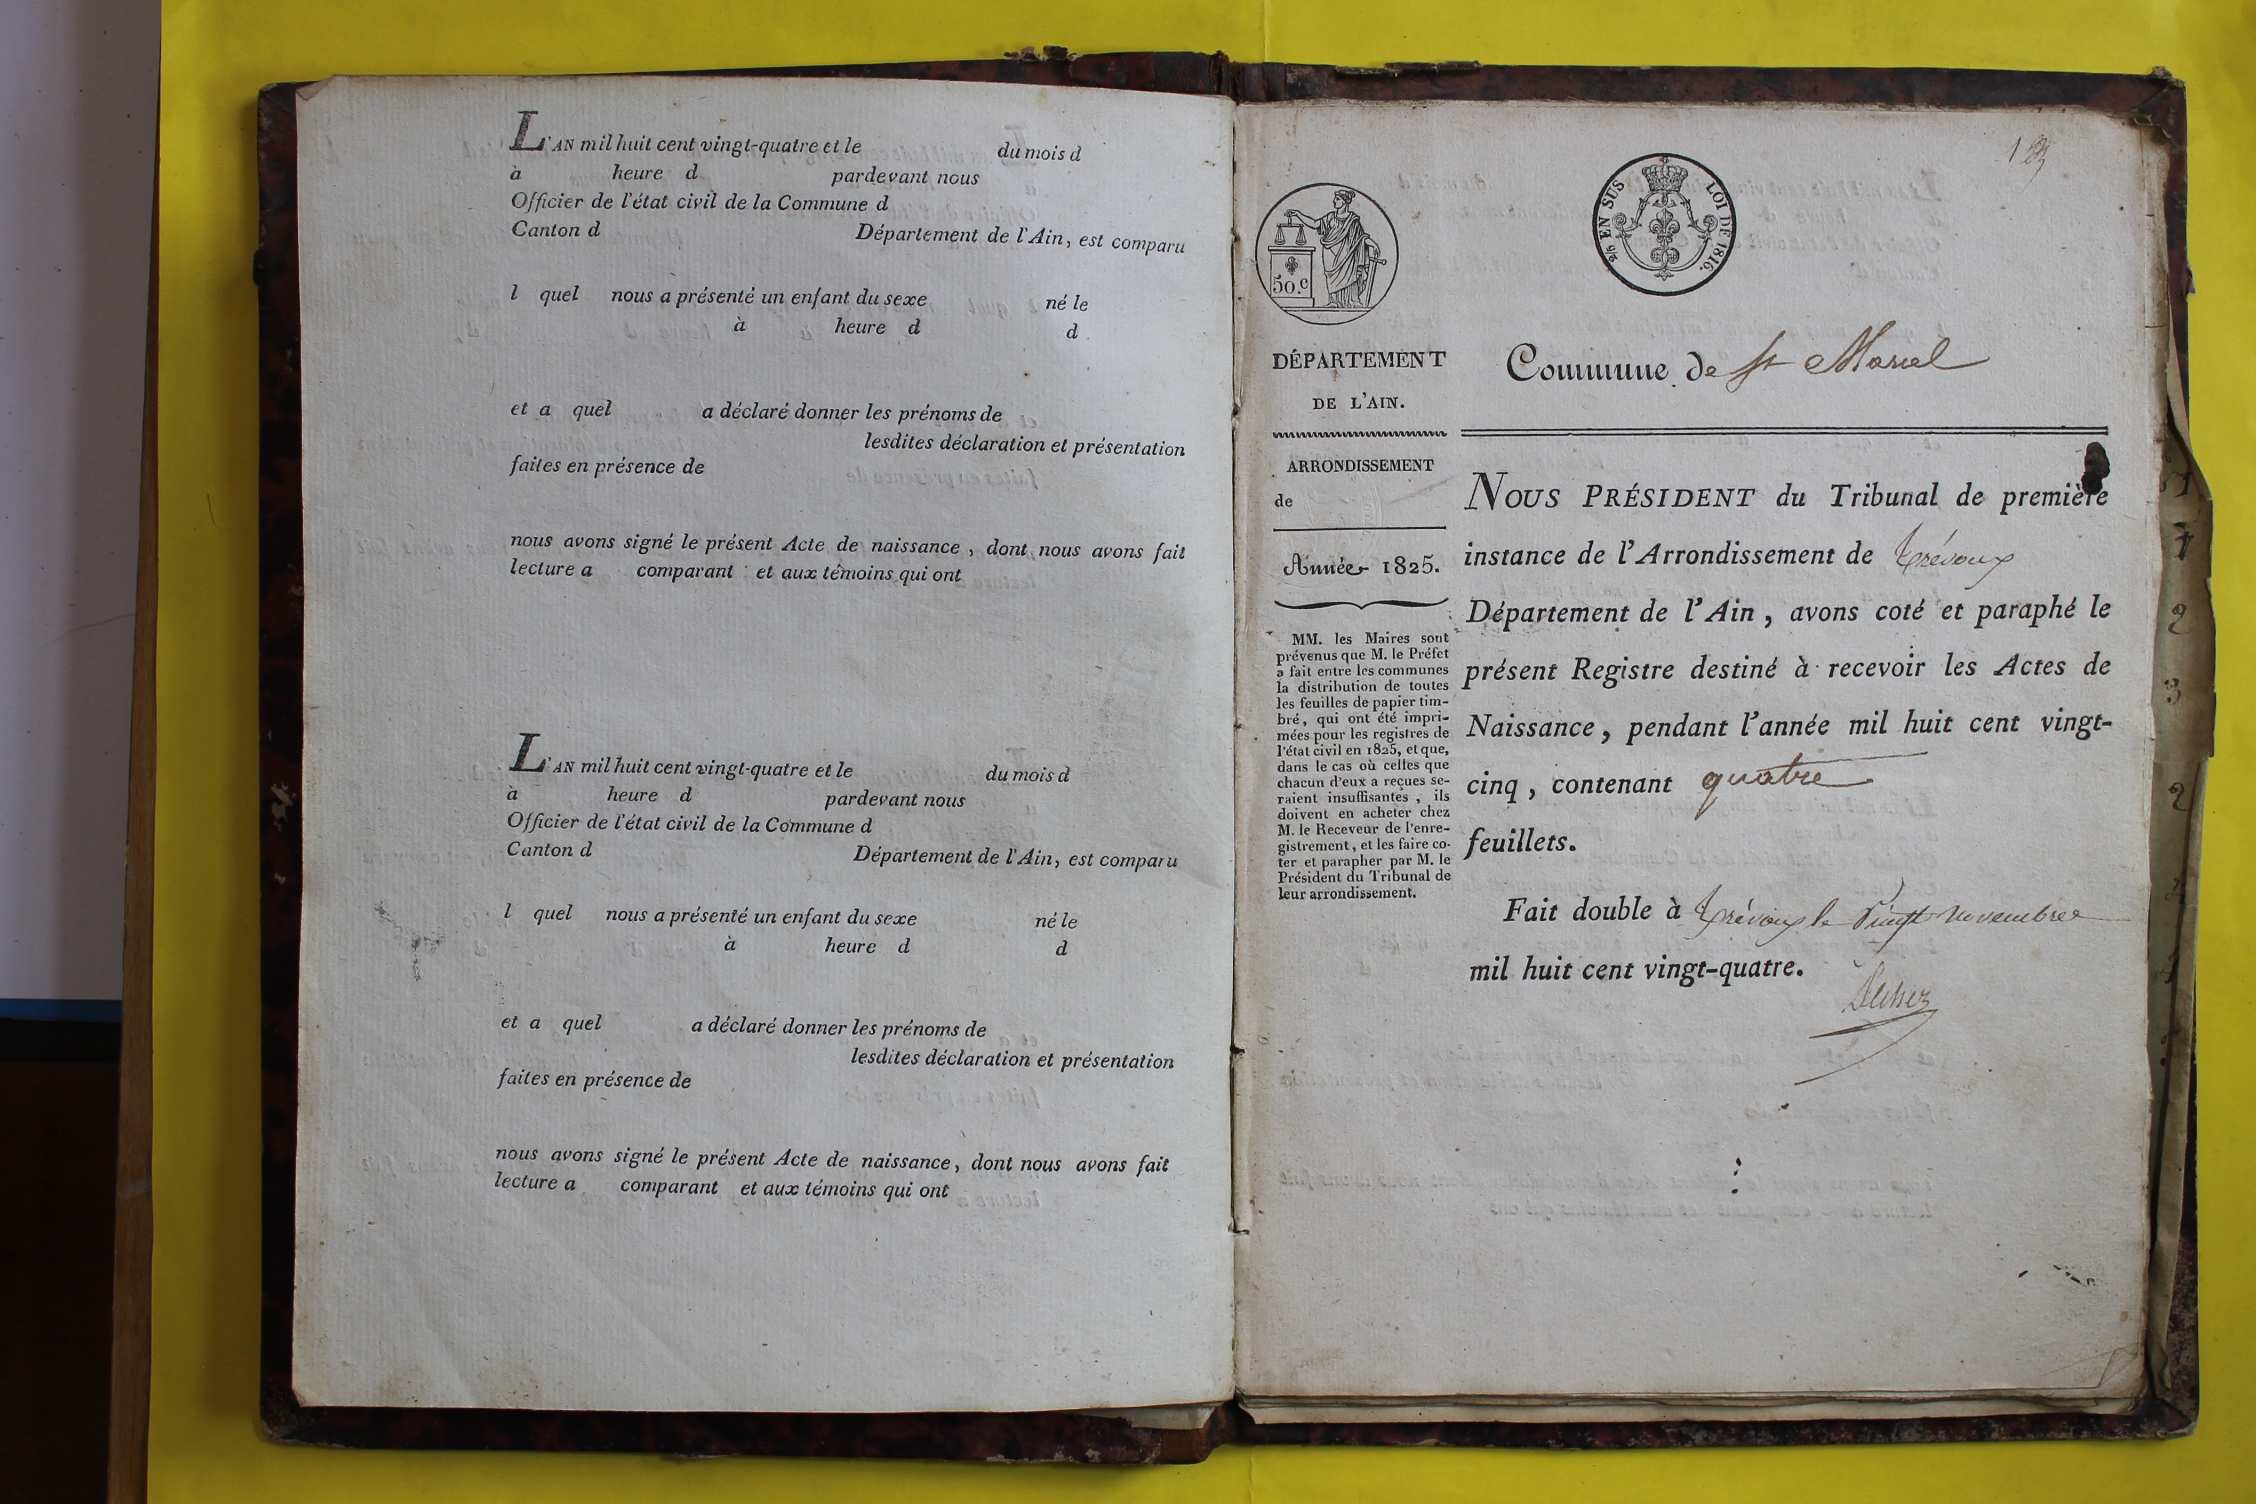 L'AN mil huit cent vingt-quatre et le du mois d
à heure d pardevant nous
Officier de l'état civil de la Commune d
Canton d Département de l'Ain, est comparu
l quel nous a présenté un enfant du sexe né le
à heure d d
et a quel a déclaré donner les prénoms de
lesdites déclaration et présentation
faites en présence de
nous avons signé le présent Acte de naissance, dont nous avons fait
lecture a comparant et aux témoins qui ont
L'AN mil huit cent vingt-quatre et le du mois d
à heure d pardevant nous
Officier de l'état civil de la Commune d
Canton d Département de l'Ain, est comparu
l quel nous a présenté un enfant du sexe né le
à heure d d
et a quel a déclaré donner les prénoms de
lesdites déclaration et présentation
faites en présence de
nous avons signé le présent Acte de naissance, dont nous avons fait
lecture a comparant et aux témoins qui ont
1
50.c
2/6 EN SUS LOI DE 1816.
DÉPARTEMENT
DE L'AIN.
ARRONDISSEMENT
de
Année 1825.
MM. les Maires sont
prévenus que M. le Préfet
a fait entre les communes
la distribution de toutes
les feuilles de papier tim-
bré, qui ont été impri-
mées pour les registres de
l'état civil en 1825, et que,
dans le cas où celles que
chacun d'eux a reçues se-
raient insuffisantes, ils
doivent en acheter chez
M. le Receveur de l'enre-
gistrement, et les faire co-
ter et parapher par M. le
Président du Tribunal de
leur arrondissement.
Commune de St Marcel
NOUS PRÉSIDENT du Tribunal de première
instance de l'Arrondissement de Trévoux
Département de l'Ain, avons coté et paraphé le
présent Registre destiné à recevoir les Actes de
Naissance, pendant l'année mil huit cent vingt-
cinq, contenant quatre
feuillets.
Fait double à Trévoux le vingt novembre
mil huit cent vingt-quatre.
1
1
2
3
2